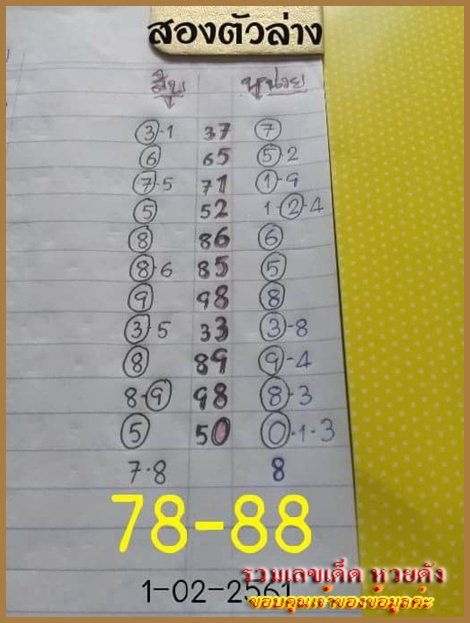 สองตัวล่าง
สิบ หน่วย
3-1 37 7
6 65 5-2
7-5 71 1-9
5 52 1-2-4
8 86 6
8-6 85 5
9 98 8
3-5 33 3-8
8 89 9-4
8-9 98 8-3
5 50 0-1-3
7-8 8
78-88
รวมเลขเด็ด หวยดัง
1-02-2561
ขอบคุณเจ้าของข้อมูลค่ะ